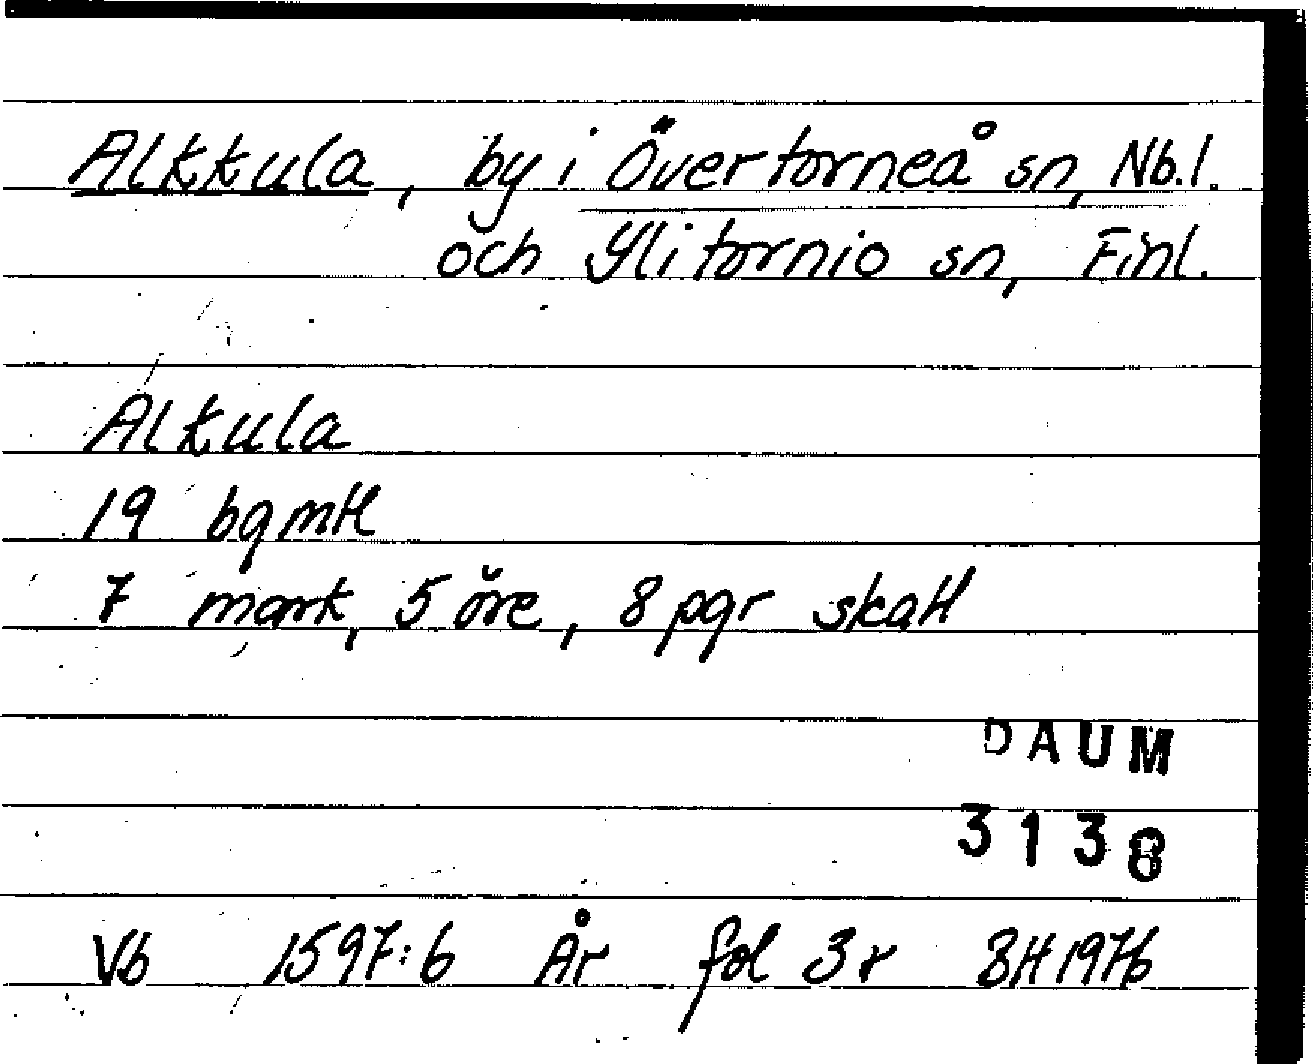 Alkkula, by i Övertorneå sn, Nb.l.
och Ylitornio sn, Finl.
Alkula
19 bgmtl
7 mark, 5 öre, 8 pgr skatt
DAUM
3138
Vb 1597:6 År fol 3r BH 1976